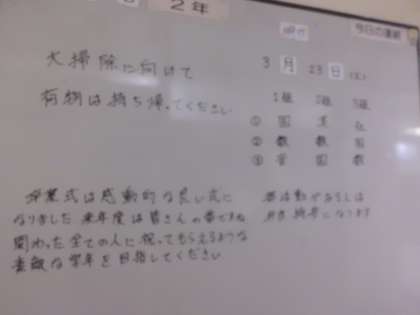 2年
今日の連絡
大掃除に向けて
3月23日(火)
荷物は持ち帰ってください
1組 2組 3組
① 国
② 数 数 国
③ 学 国
卒業式は感動的な良い式に
なりました 来年度は皆さんの番ですね
関わった全ての人に祝ってもらえるような
素敵な学年を目指してください
部活動がある人は
弁当持参になります